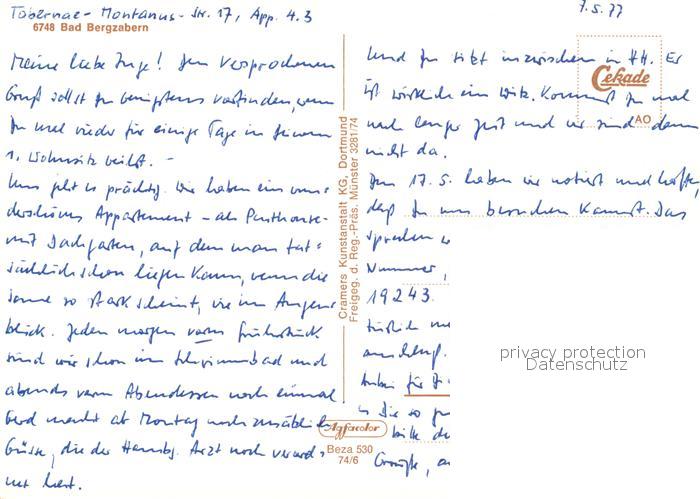 Tabernae-Montanus-Str. 17, App. 4.3
6748 Bad Bergzabern
7.5.77
Meine liebe Inge! Den versprochenen
Gruß sollst Du wenigstens vorfinden, wenn
Du mal wieder für einige Tage in Deinem
1. Wohnsitz weilst. -
Uns geht es prächtig. Wir haben ein wun-
derschönes Appartement - als Penthouse-
mit Dachgarten, auf dem man tat-
sächlich schon liegen kann, wenn die
Sonne so stark scheint, wie im Augen-
blick. Jeden Morgen vorm Frühstück
sind wir schon im Schwimmbad und
abends vorm Abendessen noch einmal
Gerd macht ab Montag noch zusätzlich
Güsse, die der Hambg. Arzt noch verord-
net hat.
Cramers Kunstanstalt KG, Dortmund
Freigeg. d. Reg.-Präs. Münster 3281/74
Agfacolor
Beza 530
74/6
Und Du sitzt inzwischen in HH. Es
ist wirklich ein Witz. Kommst Du mal
nach langer Zeit und wir sind dann
nicht da.
Den 17.5. haben wir notiert und hoffen,
daß Du uns besuchen kannst. Das
sprechen
Nummer,
19243.
für
Die so
bitte
Grüße,
Cekade
AO
privacy protection
Datenschutz